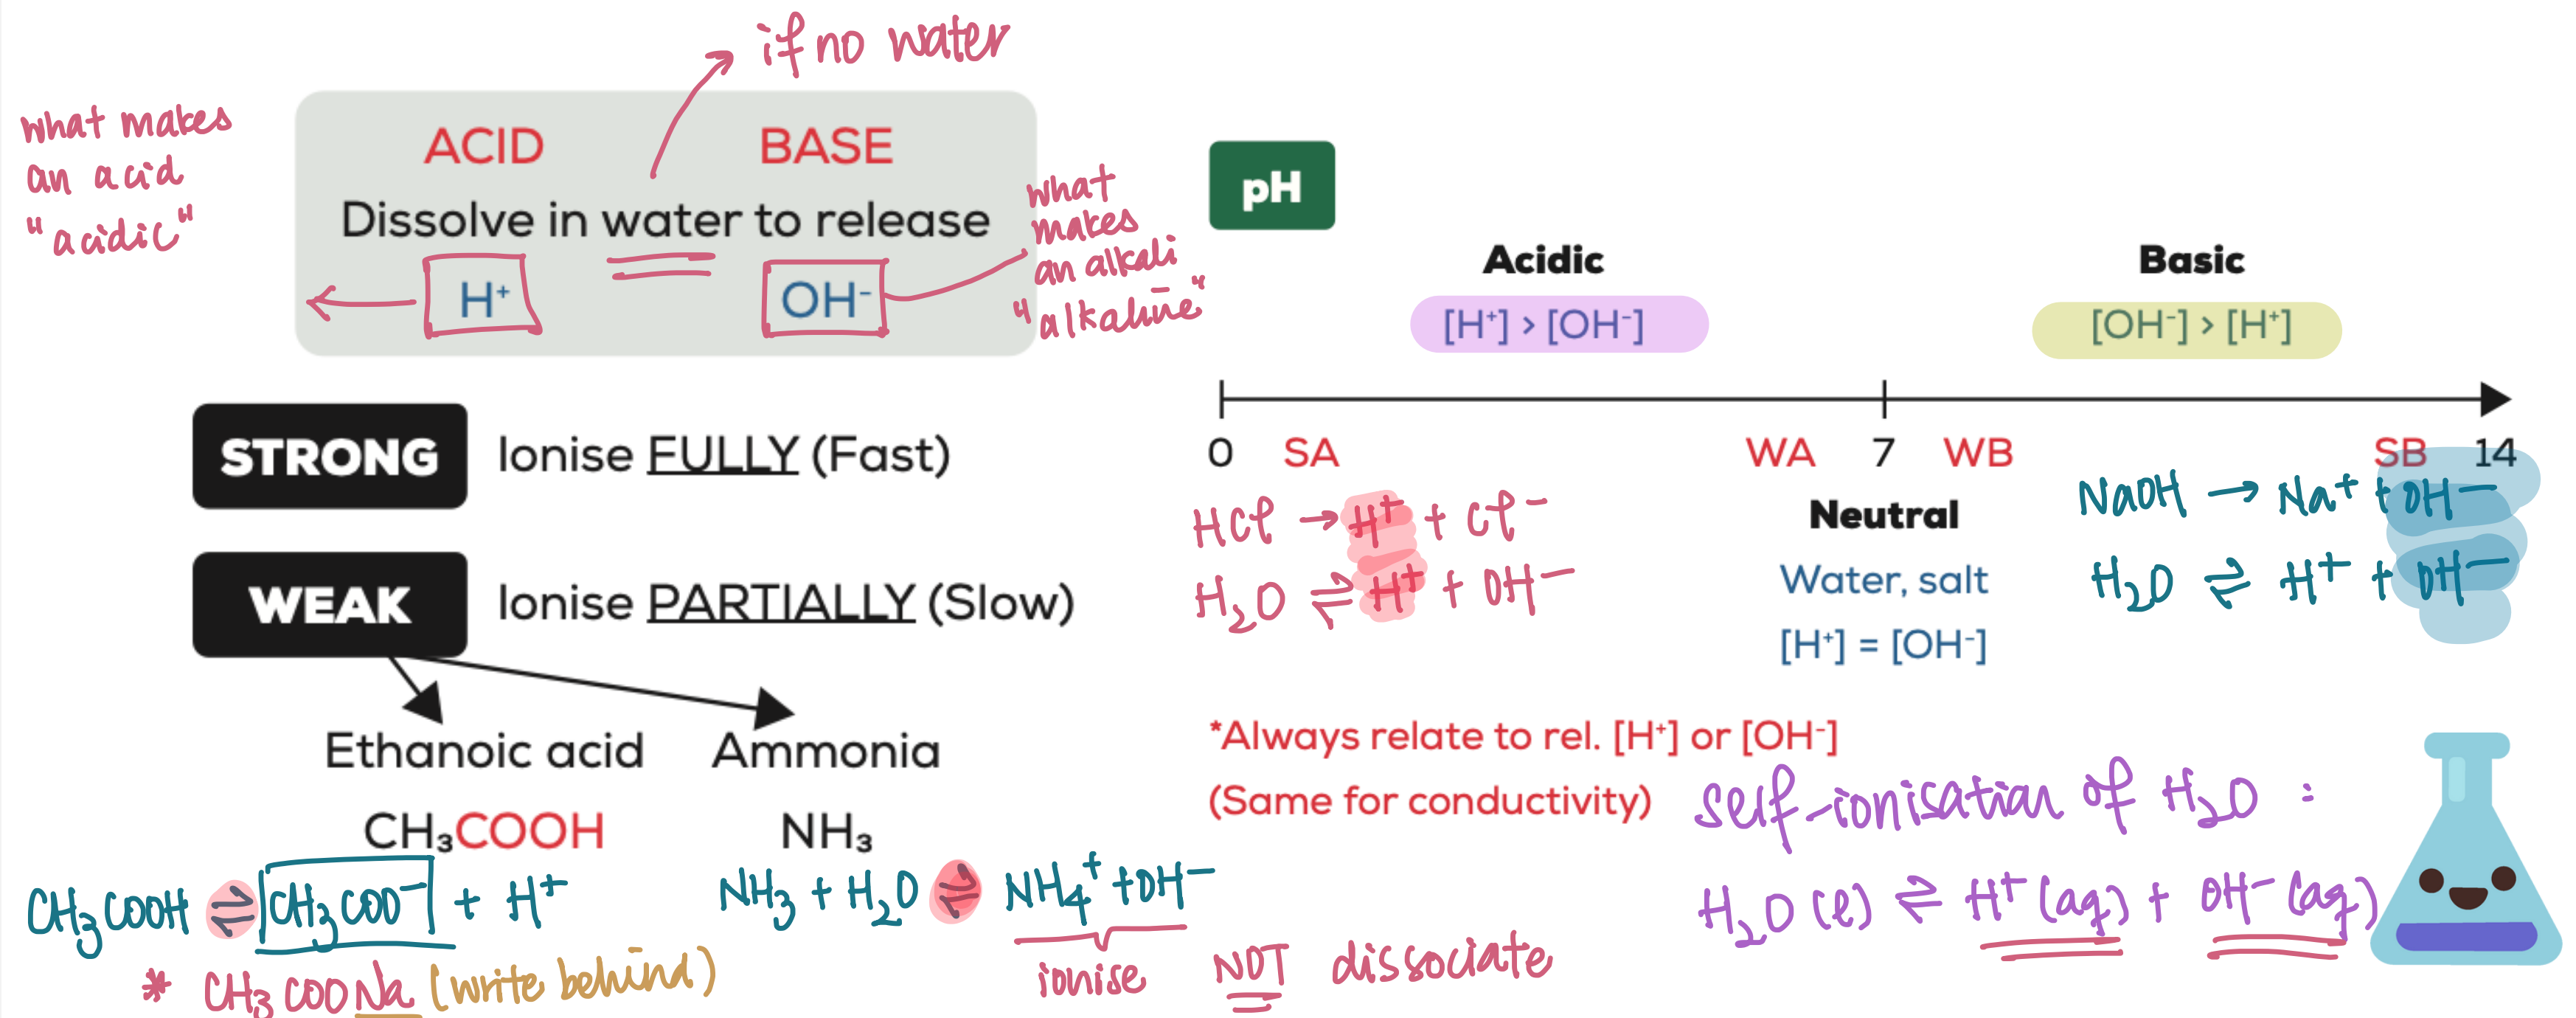 if no water
what makes
an acid
"acidic"
ACID BASE
Dissolve in water to release
H⁺ OH⁻
what
makes
an alkali
"alkaline"
STRONG Ionise FULLY (Fast)
WEAK Ionise PARTIALLY (Slow)
Ethanoic acid Ammonia
CH₃COOH NH₃
CH₃COOH ⇌ CH₃COO⁻ + H⁺
NH₃ + H₂O ⇌ NH₄⁺ + OH⁻
* CH₃COONa (write behind)
ionise NOT dissociate
pH
Acidic Basic
[H⁺] > [OH⁻] [OH⁻] > [H⁺]
0 SA WA 7 WB SB 14
HCl → H⁺ + Cl⁻
H₂O ⇌ H⁺ + OH⁻
Neutral
Water, salt
[H⁺] = [OH⁻]
NaOH → Na⁺ + OH⁻
H₂O ⇌ H⁺ + OH⁻
*Always relate to rel. [H⁺] or [OH⁻]
(Same for conductivity)
self-ionisation of H₂O :
H₂O (l) ⇌ H⁺ (aq) + OH⁻ (aq)